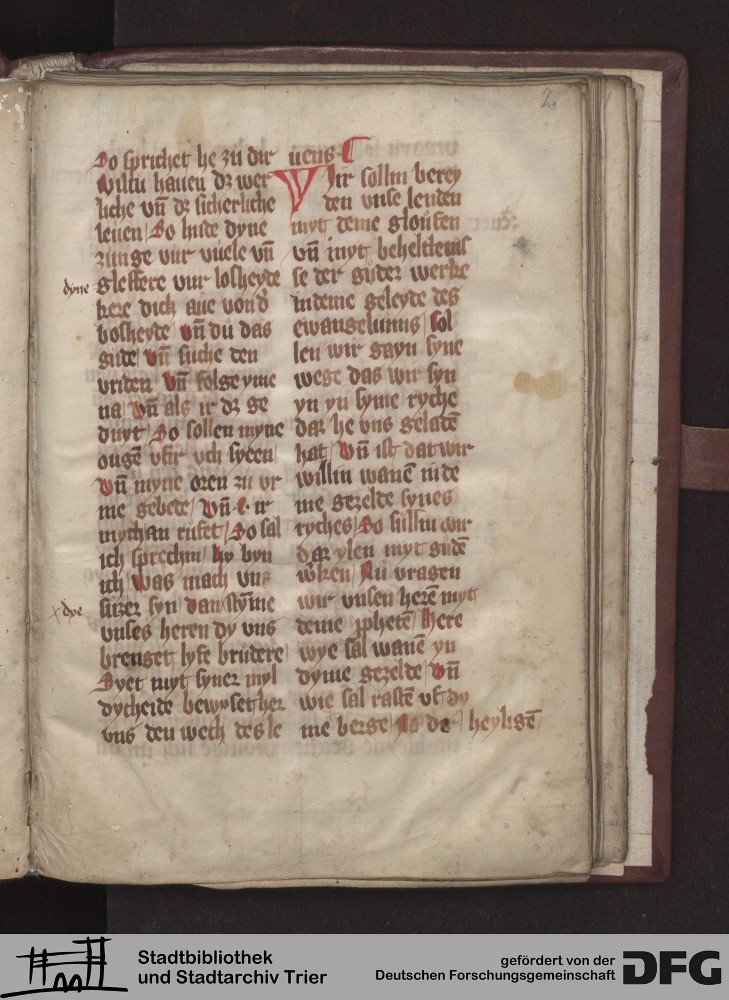 2
So sprichet he zu dir
wiltu hauen dz wer
liche vn̄ dz sicherliche
leuen / So hude dyne
zunge vur vuele vn̄
dyne
glessere vur losheyde
kere dich aue von d'
bosheyde vn̄ du das
gude vn̄ suche den
vriden vn̄ folge yme
na vn̄ als ir dz ge
duyt / So sollen myne
ougē vſir vch syeen
vn̄ myne oren zu vr
me gebede / vn̄ e ir
mych an rufet / So sal
ich sprechin / hy byn
ich / was mach vns
suzer syn dan stȳme
dye
vnses heren dy vns
brenget lyfe brudere
Syet myt syner myl
dycheide bewyset her
vns den wech des le
uens
Wir sollin berey
den vnse lenden
myt deme gloufen
vn̄ myt beheltenis
se der guder werke
in deme geleyde des
ewangeliums / sol
len wir gayn syne
wege das wir syn
yn yn syme ryche
daz he vns geladē
hat / vn̄ ist dat wir
willin wanē in de
me gezelde synes
ryches / So sullin wir
daz ylen myt gudē
wʼken / Nu vragen
wir vnsen herē myt
deme ꝓphetē / here
wye sal wanē yn
dyme gezelde vn̄
wie sal rastē vf dy
me berge / Is de heyligē
Stadtbibliothek
und Stadtarchiv Trier
gefördert von der
Deutschen Forschungsgemeinschaft
DFG